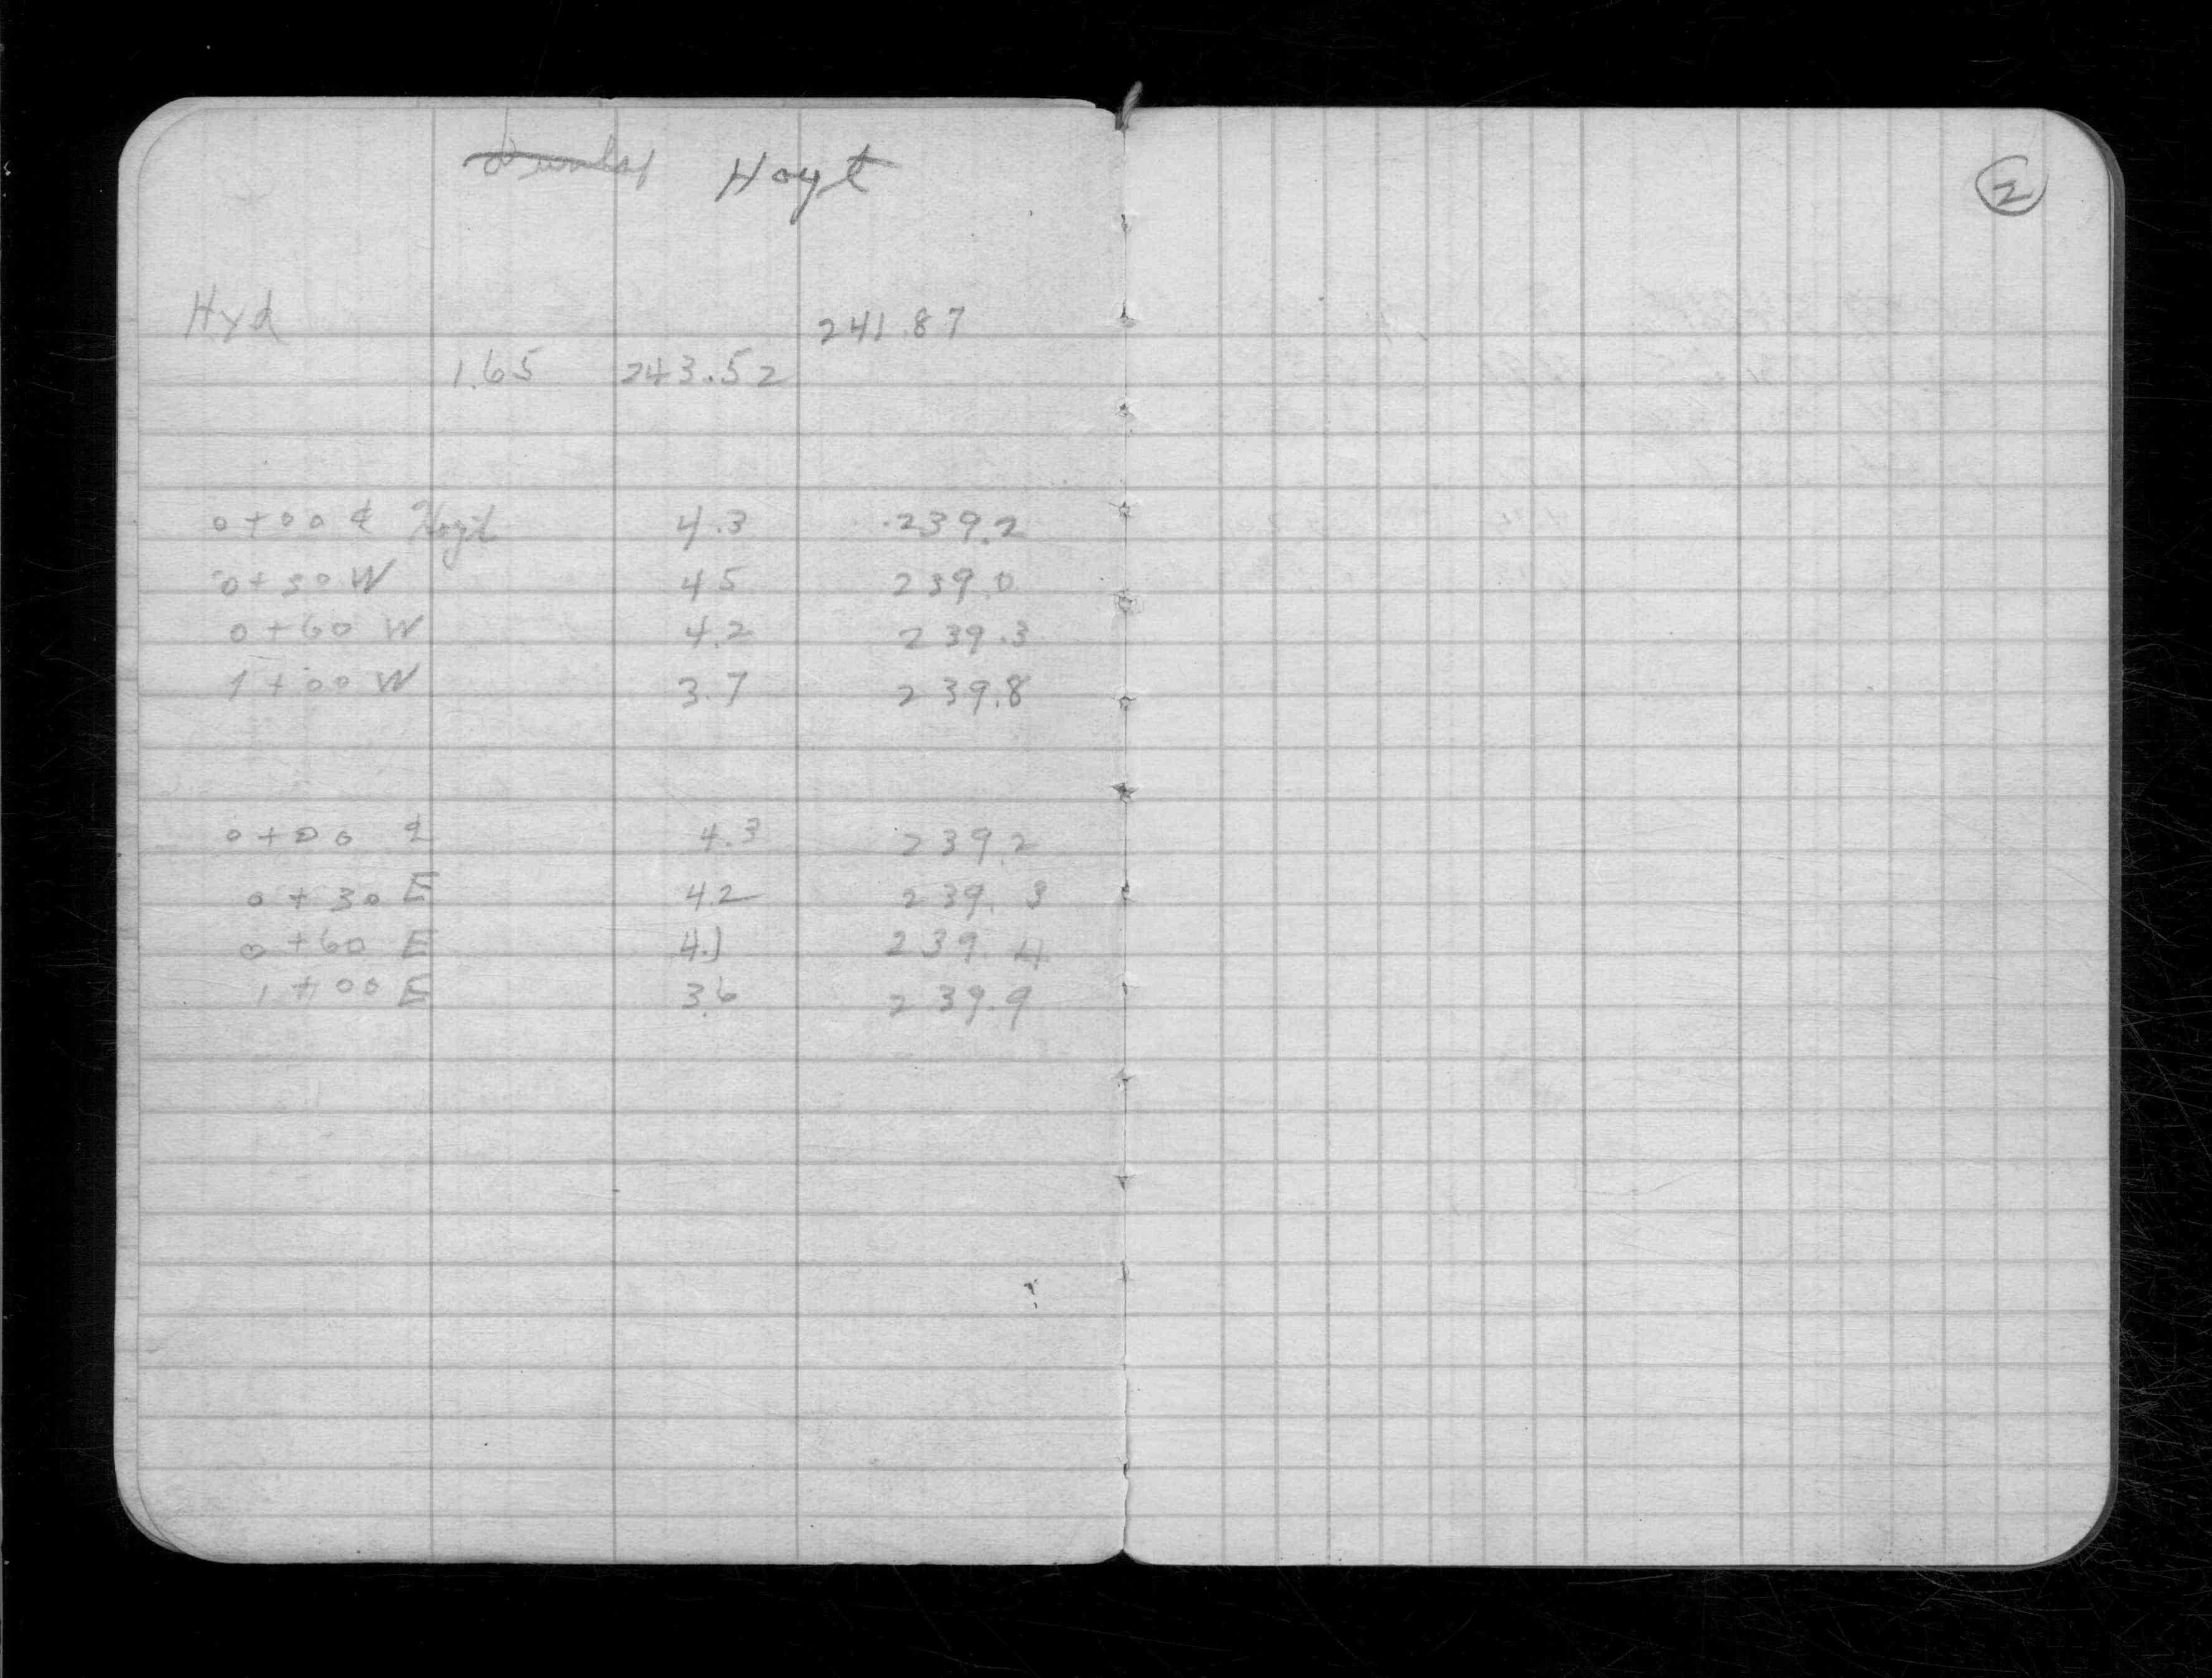 Dunlap Hoyt
②
Hyd 241.87
1.65 243.52
0+00 ℄ Hoyt 4.3 239.2
0+30 W 4.5 239.0
0+60 W 4.2 239.3
1+00 W 3.7 239.8
0+00 ℄ 4.3 239.2
0+30 E 4.2 239.3
0+60 E 4.1 239.4
1+00 E 3.6 239.9